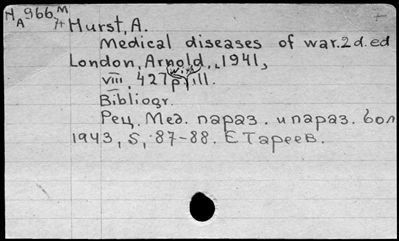 N 966 M
A 7t
Hurst, A.
Medical diseases of war. 2 d. ed
London, Arnold, 1941,
VIII, 427 p. ill.
Bibliogr.
Рец. Мед. параз. и параз. бол
1943, 5, 87-88. Е Тареев.